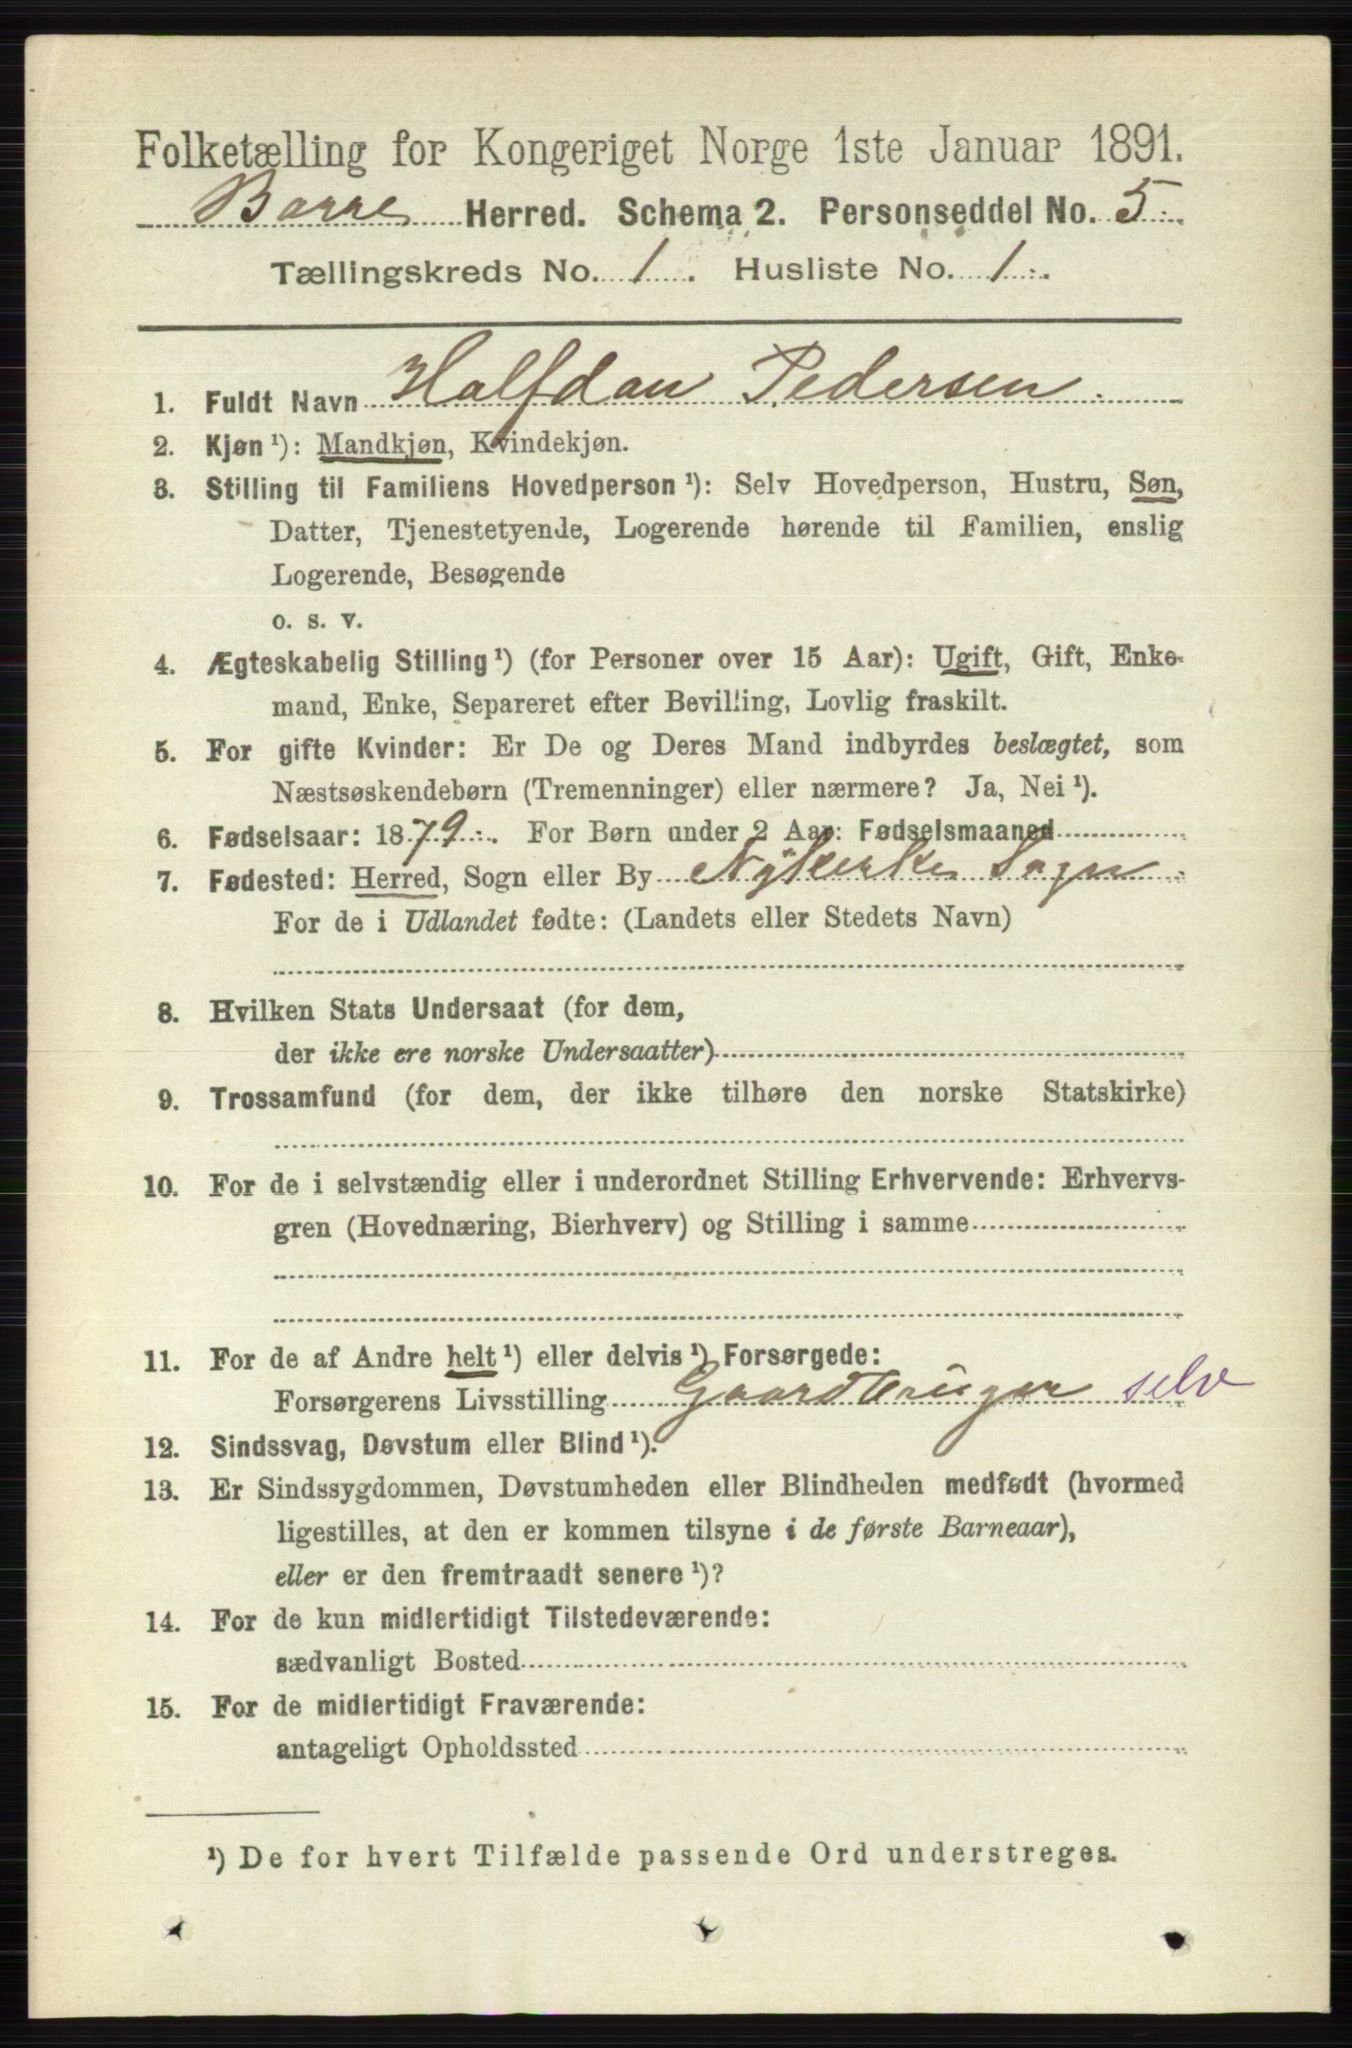 Folketælling for Kongeriget Norge 1ste Januar 1891.
Borre Herred. Schema 2. Personseddel No. 5.
Tællingskreds No. 1. Husliste No. 1.
1. Fuldt Navn Halfdan Pedersen.
2. Kjøn ¹): Mandkjøn, Kvindekjøn.
3. Stilling til Familiens Hovedperson ¹): Selv Hovedperson, Hustru, Søn,
Datter, Tjenestetyende, Logerende hørende til Familien, enslig
Logerende, Besøgende
o. s. v.
4. Ægteskabelig Stilling ¹) (for Personer over 15 Aar): Ugift, Gift, Enke-
mand, Enke, Separeret efter Bevilling, Lovlig fraskilt.
5. For gifte Kvinder: Er De og Deres Mand indbyrdes beslægtet, som
Næstsøskendebørn (Tremenninger) eller nærmere? Ja, Nei ¹).
6. Fødselsaar: 1879. For Børn under 2 Aar: Fødselsmaaned
7. Fødested: Herred, Sogn eller By Nykirke Sogn
For de i Udlandet fødte: (Landets eller Stedets Navn)
8. Hvilken Stats Undersaat (for dem,
der ikke ere norske Undersaatter)
9. Trossamfund (for dem, der ikke tilhøre den norske Statskirke)
10. For de i selvstændig eller i underordnet Stilling Erhvervende: Erhvervs-
gren (Hovednæring, Bierhverv) og Stilling i samme
11. For de af Andre helt ¹) eller delvis ¹) Forsørgede:
Forsørgerens Livsstilling Gaardbruger selv
12. Sindssvag, Døvstum eller Blind ¹).
13. Er Sindssygdommen, Døvstumheden eller Blindheden medfødt (hvormed
ligestilles, at den er kommen tilsyne i de første Barneaar),
eller er den fremtraadt senere ¹)?
14. For de kun midlertidigt Tilstedeværende:
sædvanligt Bosted
15. For de midlertidigt Fraværende:
antageligt Opholdssted
¹) De for hvert Tilfælde passende Ord understreges.